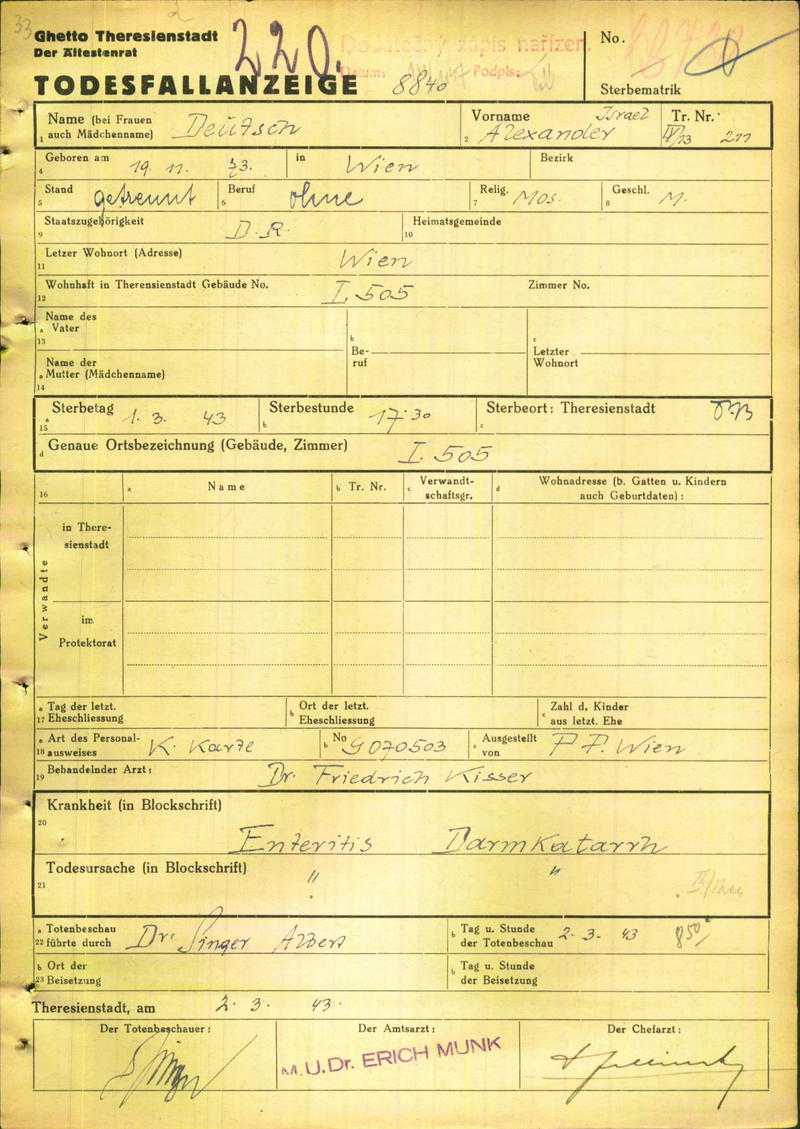 33 2
Ghetto Theresienstadt
Der Ältestenrat
220.
Dodatečný zápis nařízen.
Datum: Podpis:
No.
TODESFALLANZEIGE 8840
Sterbematrik
Name (bei Frauen Deutsch Vorname Israel Tr. Nr.
1 auch Mädchenname) 2 Alexander IV/13 211
Geboren am 19. 11. 73. in Wien Bezirk
4
Stand getrennt Beruf ohne Relig. Mos. Geschl. M.
5 6 7 8
Staatszugehörigkeit D.R. Heimatsgemeinde
9 10
Letzer Wohnort (Adresse) Wien
11
Wohnhaft in Therensienstadt Gebäude No. I. 505 Zimmer No.
12
Name des
a Vater b c
13 Be- Letzter
Name der ruf Wohnort
a Mutter (Mädchenname)
14
Sterbetag 1. 3. 43 Sterbestunde 17·30 Sterbeort: Theresienstadt
15 a b c
d Genaue Ortsbezeichnung (Gebäude, Zimmer) I. 505
16 a Name b Tr. Nr. c Verwandt-schaftsgr. d Wohnadresse (b. Gatten u. Kindern
auch Geburtdaten):
Verwandte
in There-
sienstadt
im
Protektorat
a Tag der letzt. b Ort der letzt. c Zahl d. Kinder
17 Eheschliessung Eheschliessung aus letzt. Ehe
a Art des Personal- K. Karte b No G 070503 c Ausgestellt P.P. Wien
18 ausweises von
19 Behandelnder Arzt: Dr. Friedrich Kisser
Krankheit (in Blockschrift)
20
Enteritis Darmkatarrh
Todesursache (in Blockschrift) " "
21
a Totenbeschau Dr. Singer Albert b Tag u. Stunde 2. 3. 43 8 50
22 führte durch der Totenbeschau
b Ort der b Tag u. Stunde
23 Beisetzung der Beisetzung
Theresienstadt, am 2. 3. 43.
Der Totenbeschauer: Der Amtsarzt: Der Chefarzt:
M.U.Dr. ERICH MUNK